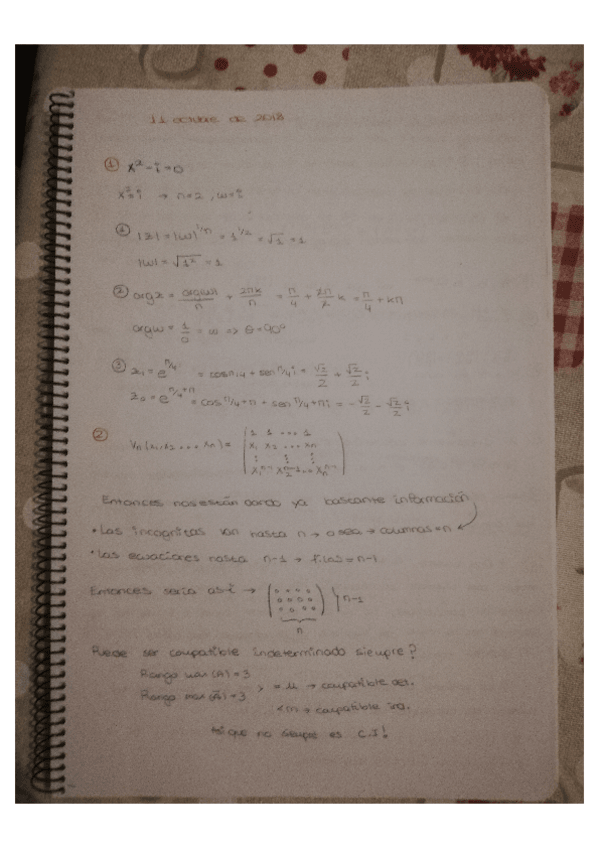 11 octubre de 2018
① x² - i = 0
x² = i → n = 2, w = i
① |z| = |w|^1/n = 1^1/2 = √1 = 1
|w| = √1² = 1
② arg z = arg(w)/n + 2πk/n = π/4 + 2π/2 k = π/4 + kπ
arg w = 1/0 = ∞ => θ = 90º
③ z₁ = e^π/4 = cos π/4 + sen π/4 i = √2/2 + √2/2 i
z₀ = e^π/4+π = cos π/4+π + sen π/4+π i = -√2/2 - √2/2 i
② Vn (x₁, x₂ ... xn) =
1 1 ... 1
x₁ x₂ ... xn
⋮ ⋮ ⋮
x₁^n-1 x₂^n-2 ... xn^n-1
Entonces nos están dando ya bastante información
• Las incógnitas van hasta n → o sea → columnas = n
• Las ecuaciones hasta n-1 → filas = n-1
Entonces sería así → n-1
n
Puede ser compatible indeterminado siempre?
Rango max (A) = 3
Rango max (Ā) = 3 > = n → compatible det.
< n → compatible ind.
así que no siempre es C.I!